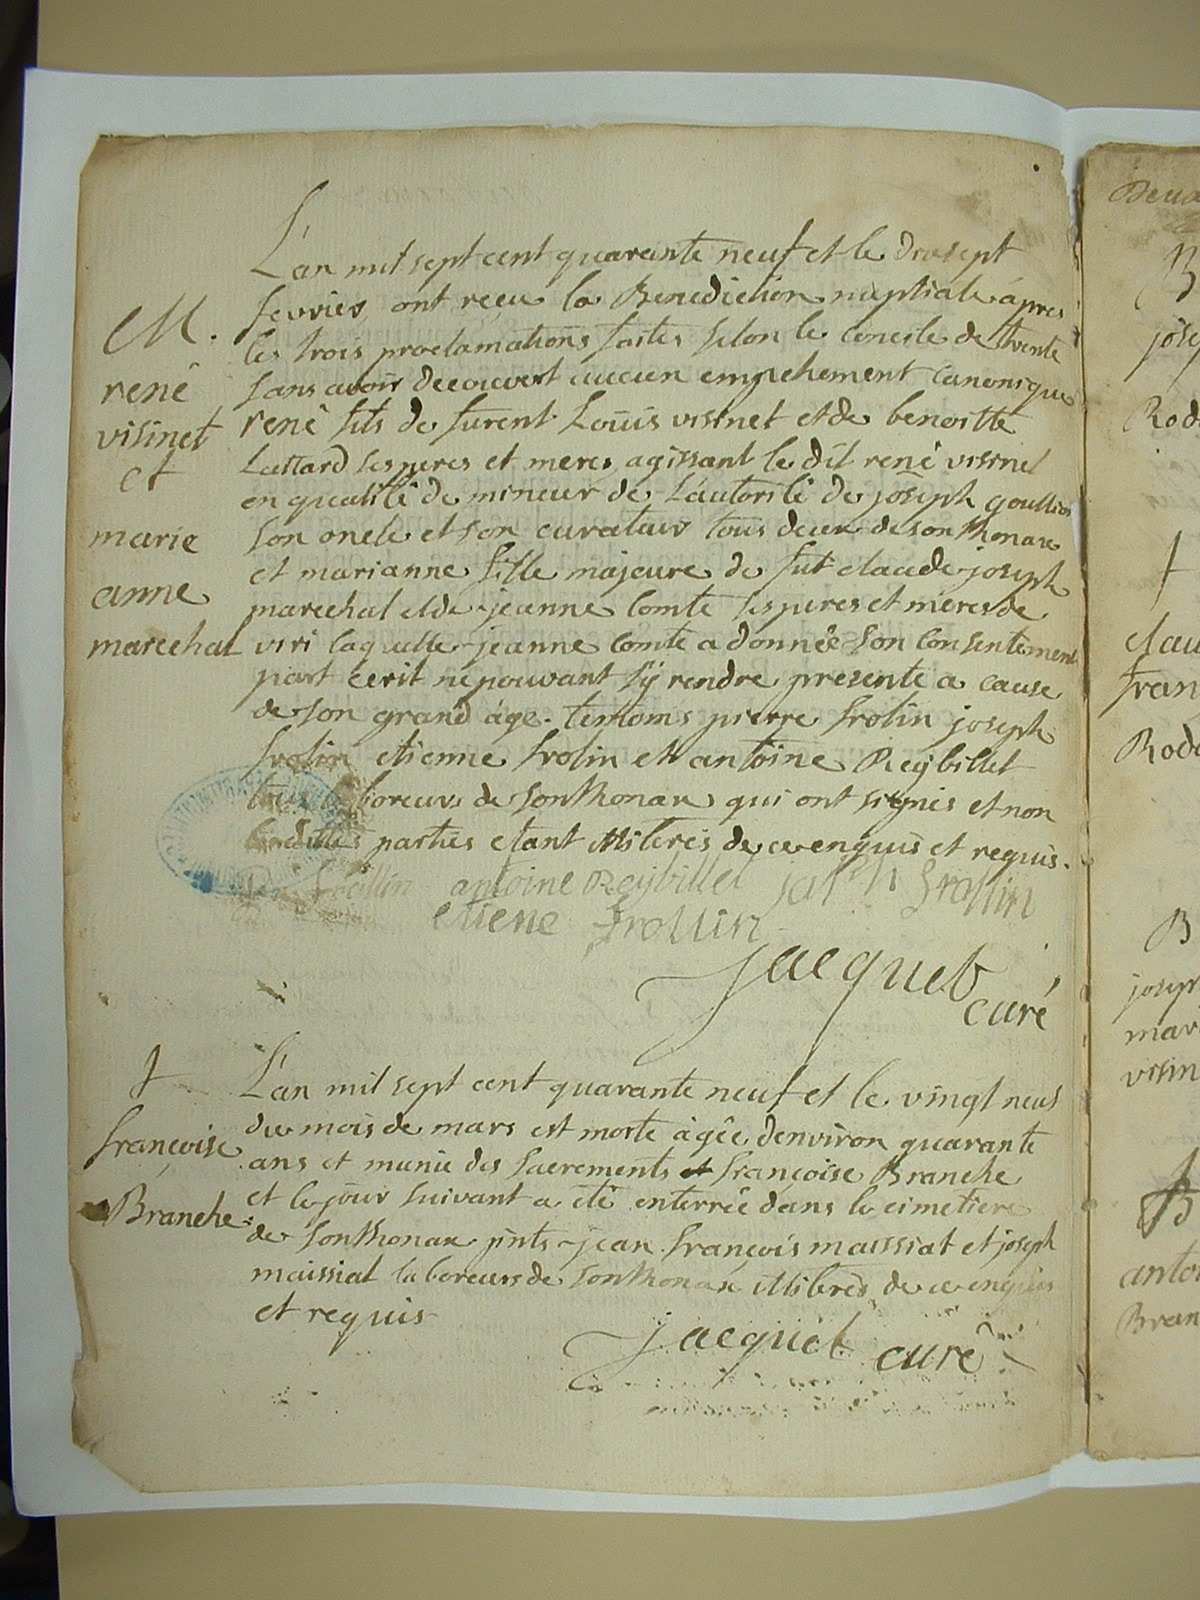 M.
renê
visinet
et
marie
anne
marechal
L'an mil sept cent quarante neuf et le dixsept
fevrier ont reçu la Benediction nuptiale âpres
les trois proclamations faites selon le concile de thrente
sans avoir decouvert aucun empehement canonique
renê fils de furent Louis visinet et de benoitte
Luttard ses peres et meres agissant le dit renê visinet
en qualitê de mineur de l'autoritê de joseph goullion
son oncle et son curateur tous deux de sonthonax
et marianne fille majeure de fut claude joseph
marechal et de jeanne Comte ses peres et meres de
viri laquelle jeanne comte a donnêe son consentement
part êcrit ne pouvant s'ÿ rendre presente a cause
de son grand âge. temoins pierre frolin joseph
frolin etienne frolin et antoine Reÿbillet
laboreurs de sonthonax qui ont signés et non
lesdittes parties etant illiterês de ce enquis et requis.
frollin antoine Reÿbillet joseph frollin
etiene frollin
jacquet
curé
†
françoise
Branche
L'an mil sept cent quarante neuf et le vingt neuf
du mois de mars est morte âgêe d'environ quarante
ans et munie des sacrements et françoise Branche
et le jour suivant a êtê enterrêe dans le cimetiere
de sonthonax pnts jean françois maissiat et joseph
maissiat laboreurs de sonthonax illiterês de ce enquis
et requis
jacquet curê
B
Rode
†
clau
fran
Rode
B
joseph
mar
visin
B
anto
Bran